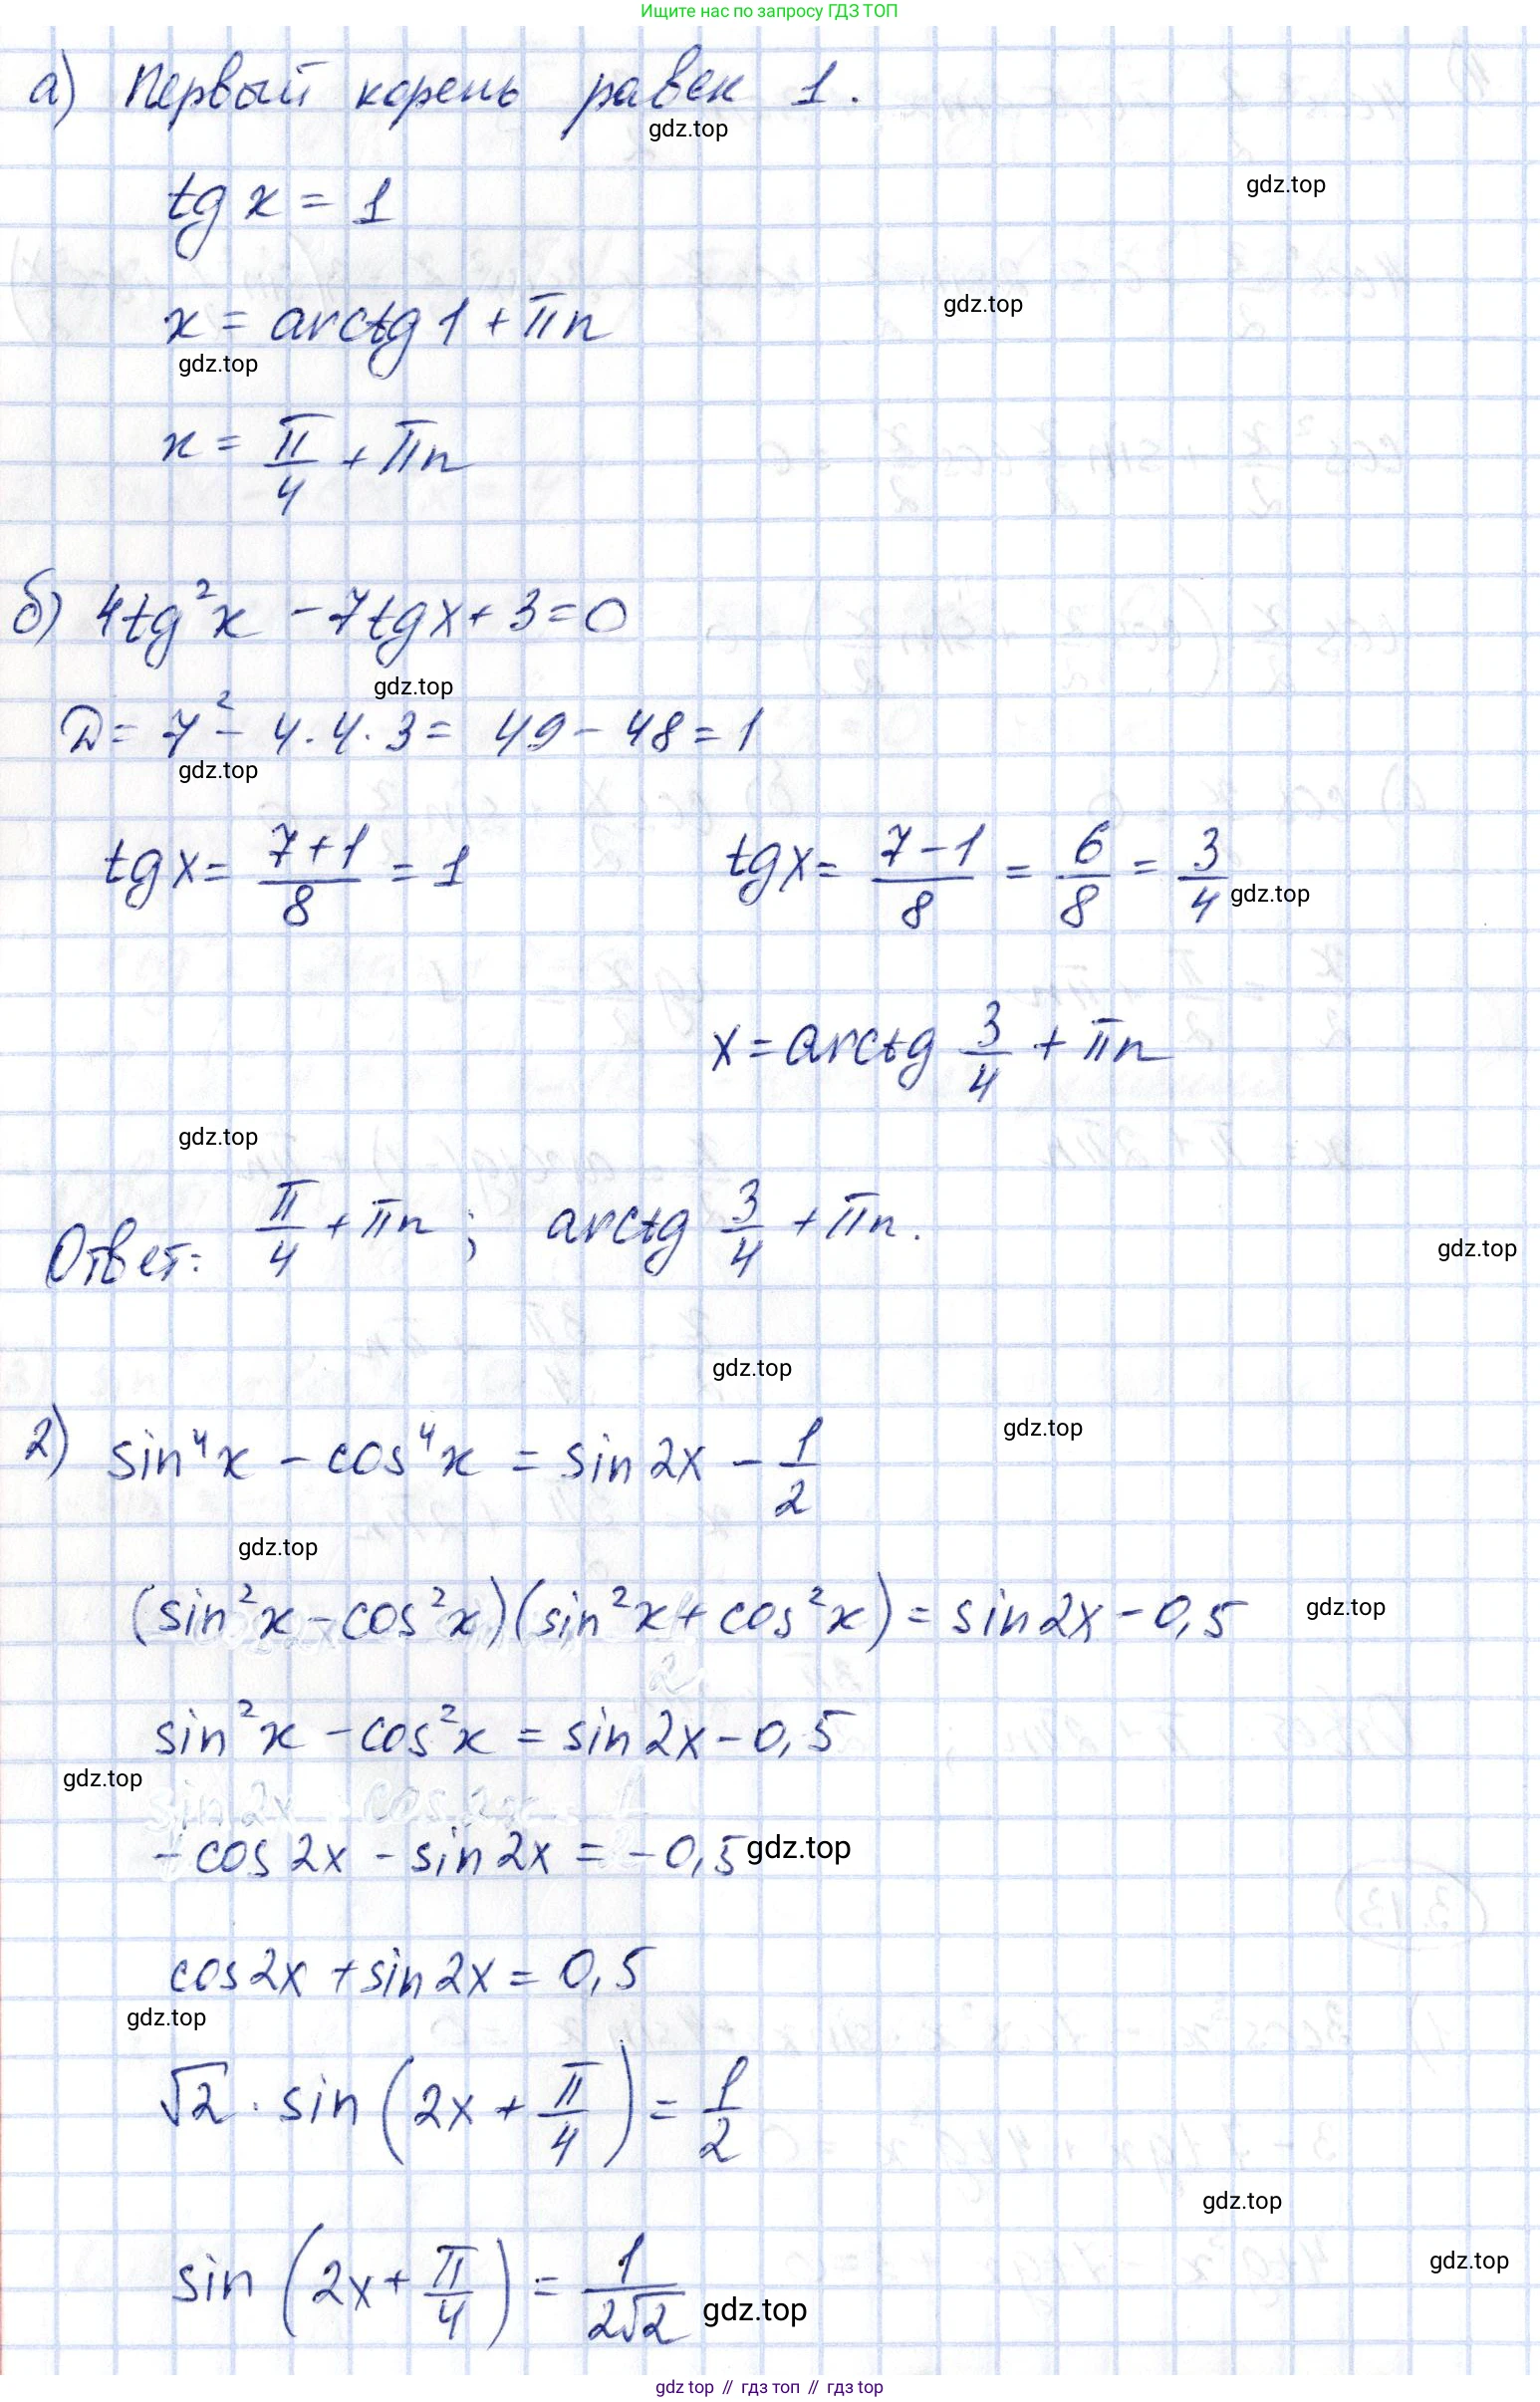 Ищите нас по запросу ГДЗ ТОП
а) Первый корень равен 1.
gdz.top
gdz.top
tg x = 1
gdz.top
x = arctg 1 + πn
gdz.top
x = π/4 + πn
б) 4tg²x - 7tgx + 3 = 0
gdz.top
D = 7² - 4·4·3 = 49 - 48 = 1
gdz.top
tgx = (7+1)/8 = 1   tgx = (7-1)/8 = 6/8 = 3/4
gdz.top
x = arctg 3/4 + πn
gdz.top
Ответ: π/4 + πn; arctg 3/4 + πn.
gdz.top
gdz.top
2) sin⁴x - cos⁴x = sin2x - 1/2
gdz.top
gdz.top
(sin²x - cos²x)(sin²x + cos²x) = sin2x - 0,5
gdz.top
sin²x - cos²x = sin2x - 0,5
gdz.top
- cos2x - sin2x = -0,5
gdz.top
cos2x + sin2x = 0,5
gdz.top
√2 · sin(2x + π/4) = 1/2
gdz.top
gdz.top
sin(2x + π/4) = 1/(2√2)
gdz.top
gdz top // гдз топ // гдз top